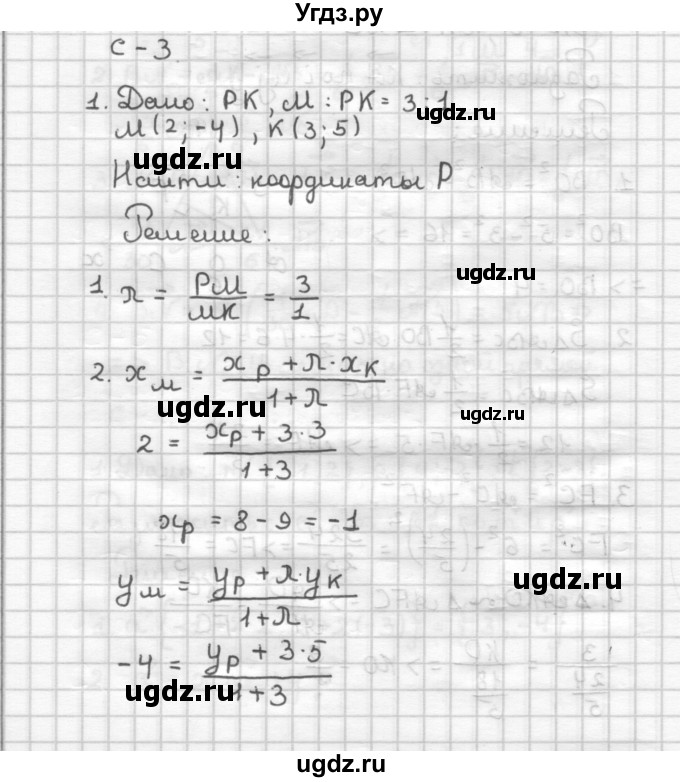 Угдз.ру
С - 3.
1. Дано: PK, M : PK = 3 : 1
ugdz.ru
M(2; -4), K(3; 5)
ugdz.ru
Найти: координаты P
Решение:
ugdz.ru
1. λ = PM/MK = 3/1
2. x_M = (x_P + λ·x_K)/(1+λ)
ugdz.ru
ugdz.ru
2 = (x_P + 3·3)/(1+3)
x_P = 8 - 9 = -1
ugdz.ru
y_M = (y_P + λ·y_K)/(1+λ)
-4 = (y_P + 3·5)/(1+3)
ugdz.ru
ugdz.ru